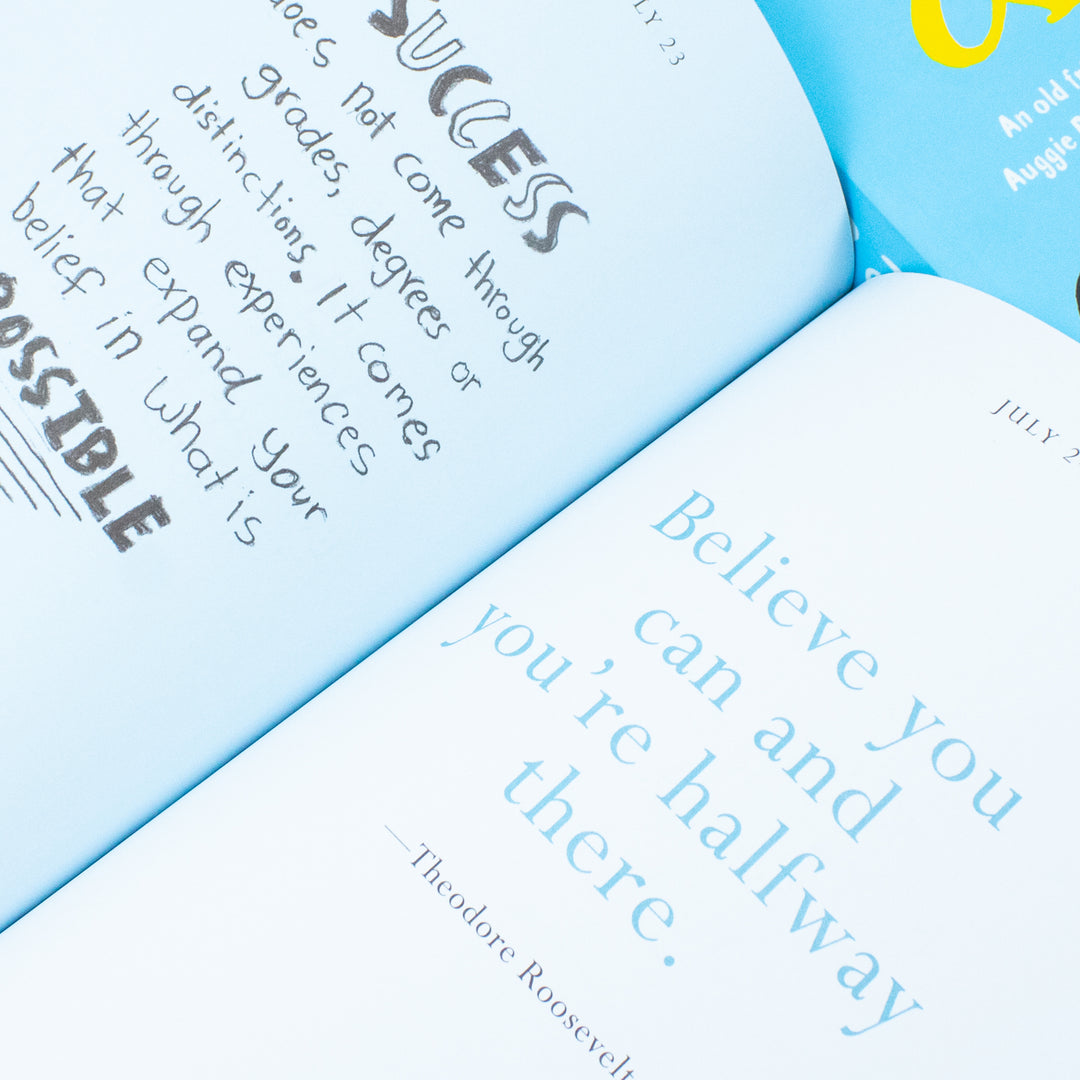 JULY 23
SUCCESS
does not come through
grades, degrees or
distinctions. It comes
through experiences
that expand your
belief in what is
POSSIBLE
JULY 2
Believe you
can and
you're halfway
there.
—Theodore Roosevelt
An old
Auggie